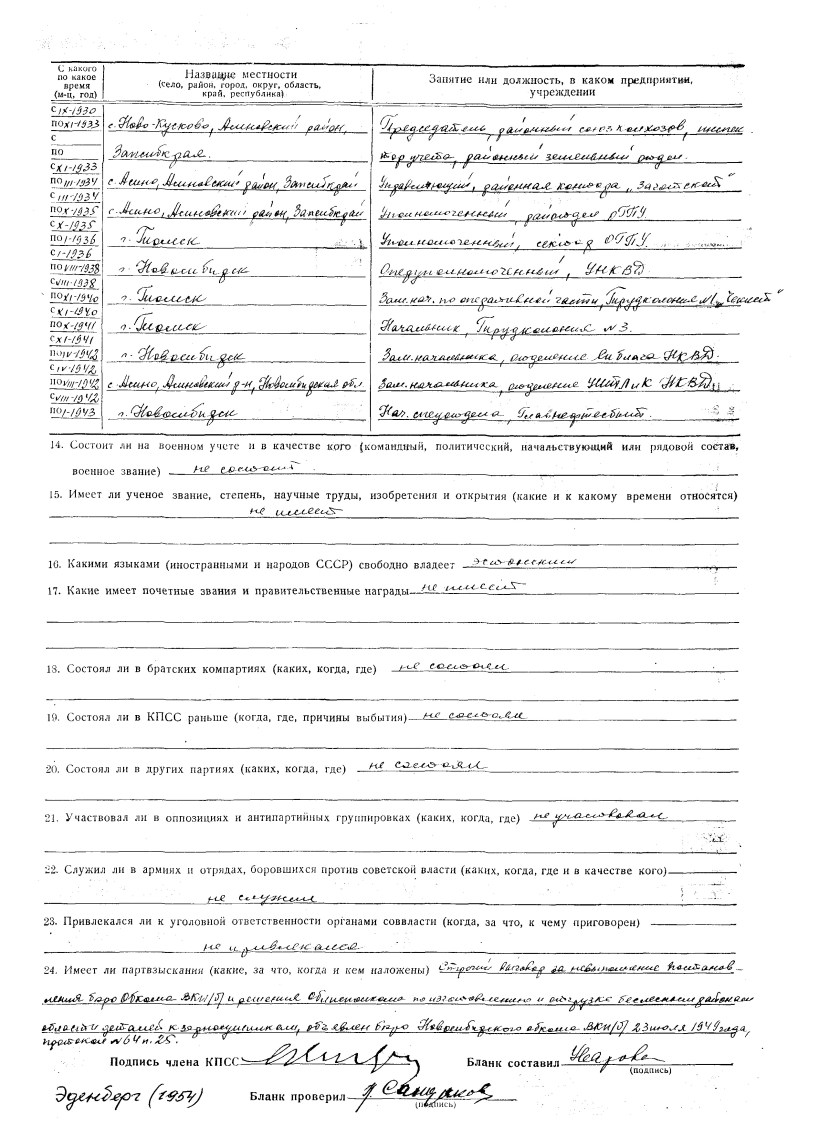 С какого по какое время (м-ц, год)
Название местности (село, район, город, округ, область, край, республика)
Занятие или должность, в каком предприятии, учреждении
с IX-1930
по XI-1933 с. Ново-Кусково, Асиновский район, Председатель, районный союз колхозов, инспек-
с
по Запсибкрая. тор учета, районный земельный отдел.
с XI-1933
по III-1934 с. Асино, Асиновский район, Запсибкрай Управляющий, районная контора „Заготскот"
с III-1934
по X-1935 с. Асино, Асиновский район, Запсибкрай Уполномоченный, райотдел ОГПУ
с X-1935
по I-1936 г. Томск Уполномоченный, секция ОГПУ
с I-1936
по VIII-1938 г. Новосибирск Оперуполномоченный, УНКВД
с VIII-1938
по XI-1940 г. Томск Зам. нач. по оперативной части, Трудколония №1
с XI-1940
по X-1941 г. Томск Начальник, Трудколония №3.
с XI-1941
по IV-1942 г. Новосибирск Зам. начальника, отделение Сиблага НКВД.
с IV-1942
по VIII-1942 с. Асино, Асиновский р-н, Новосибирская обл. Зам. начальника, отделение УИТЛиК НКВД
с VIII-1942
по I-1943 г. Новосибирск Нач. спецотдела, Главнефтесбыт.
14. Состоит ли на военном учете и в качестве кого (командный, политический, начальствующий или рядовой состав,
военное звание) не состоит.
15. Имеет ли ученое звание, степень, научные труды, изобретения и открытия (какие и к какому времени относятся)
не имеет
16. Какими языками (иностранными и народов СССР) свободно владеет эстонским
17. Какие имеет почетные звания и правительственные награды не имеет
18. Состоял ли в братских компартиях (каких, когда, где) не состоял
19. Состоял ли в КПСС раньше (когда, где, причины выбытия) не состоял
20. Состоял ли в других партиях (каких, когда, где) не состоял
21. Участвовал ли в оппозициях и антипартийных группировках (каких, когда, где) не участвовал
22. Служил ли в армиях и отрядах, боровшихся против советской власти (каких, когда, где и в качестве кого)
не служил
23. Привлекался ли к уголовной ответственности органами соввласти (когда, за что, к чему приговорен)
не привлекался
24. Имеет ли партвзыскания (какие, за что, когда и кем наложены) Строгий выговор за невыполнение постанов-
ления бюро Обкома ВКП/б/ и решения Облисполкома по изготовлению и отгрузке безлесным районам
области деталей к зерносушилкам, объявлен бюро Новосибирского обкома ВКП/б/ 23 июля 1949 года,
протокол №64 п. 25.
Подпись члена КПСС
Бланк составил
(подпись)
Эденберг (1954)
Бланк проверил
(подпись)